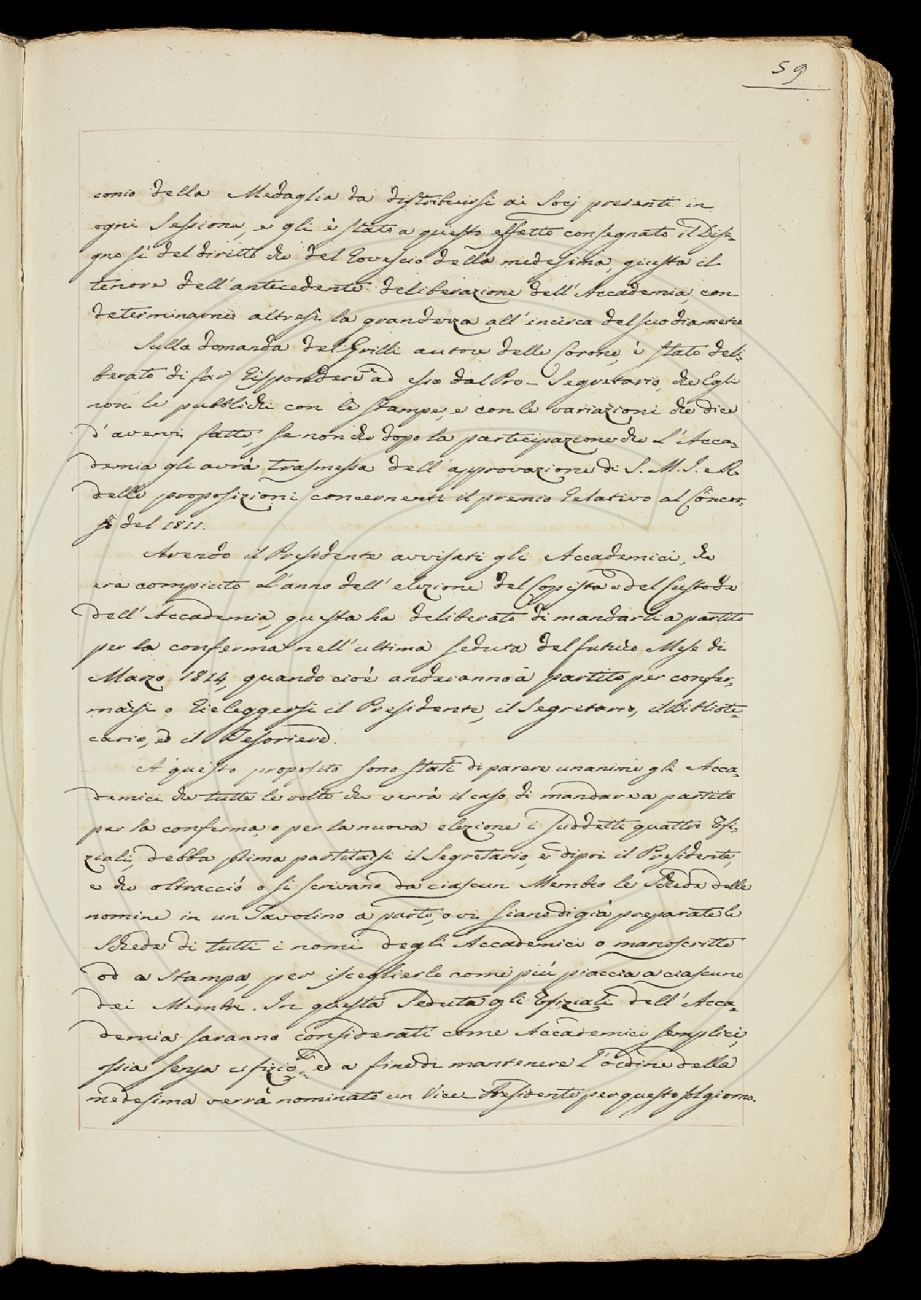 59
conio della Medaglia da distribuirsi ai Socj presenti in
ogni Sessione, e gli è stato a questo effetto consegnato il Dise-
gno sì del diritto che del rovescio della medesima, giusta il
tenore dell'antecedente deliberazione dell'Accademia, con
determinarne altresì la grandezza all'incirca del suo diametro
Sulla domanda del Grilli autore delle Corone, è stato deli-
berato di far rispondere ad esso dal Pro-Segretario, che Egli
non le pubblichi con le stampe, e con le variazioni che dice
d'avervi fatte, se non che dopo la partecipazione che l'Acca-
demia gli avrà trasmessa dell'approvazione di S. M. I. e R.
delle proposizioni concernenti il premio relativo al Concor-
so del 1811.
Avendo il Presidente avvisati gli Accademici, che
era compiuto l'anno dell'elezione del Copista e del Custode
dell'Accademia, questa ha deliberato di mandarli a partito
per la conferma nell'ultima seduta del futuro Mese di
Marzo 1814, quando cioè anderanno a partito per confer-
marsi o rieleggersi il Presidente, il Segretario, il Bibliote-
cario, ed il Tesoriere.
A questo proposito sono stati di parere unanime gli Acca-
demici che tutte le volte che verrà il caso di mandare a partito
per la conferma, o per la nuova elezione i suddetti quattro Ofi-
ziali, debba prima partitarsi il Segretario, e dipoi il Presidente,
e che oltracciò o si scrivano da ciascun Membro le Schede delle
nomine in un Tavolino a parte, o vi siano di già preparate le
Schede di tutti i nomi degli Accademici o manoscritte
od a Stampa, per isceglierle come più piaccia a ciascuno
dei Membri. In questa Seduta gli Ofiziali dell'Acca-
demia saranno considerati come Accademici semplici,
ossia senza ufizio, ed a fine di mantenere l'ordine della
medesima verrà nominato un Vice Presidente per questo sol giorno.